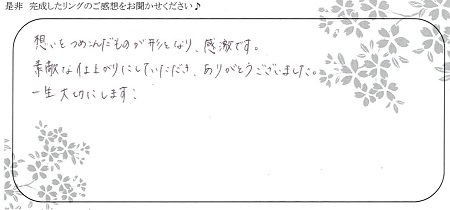 是非 完成したリングのご感想をお聞かせください♪
想いをつめこんだものが形となり、感激です。
素敵な仕上がりにしていただき、ありがとうございました。
一生大切にします!